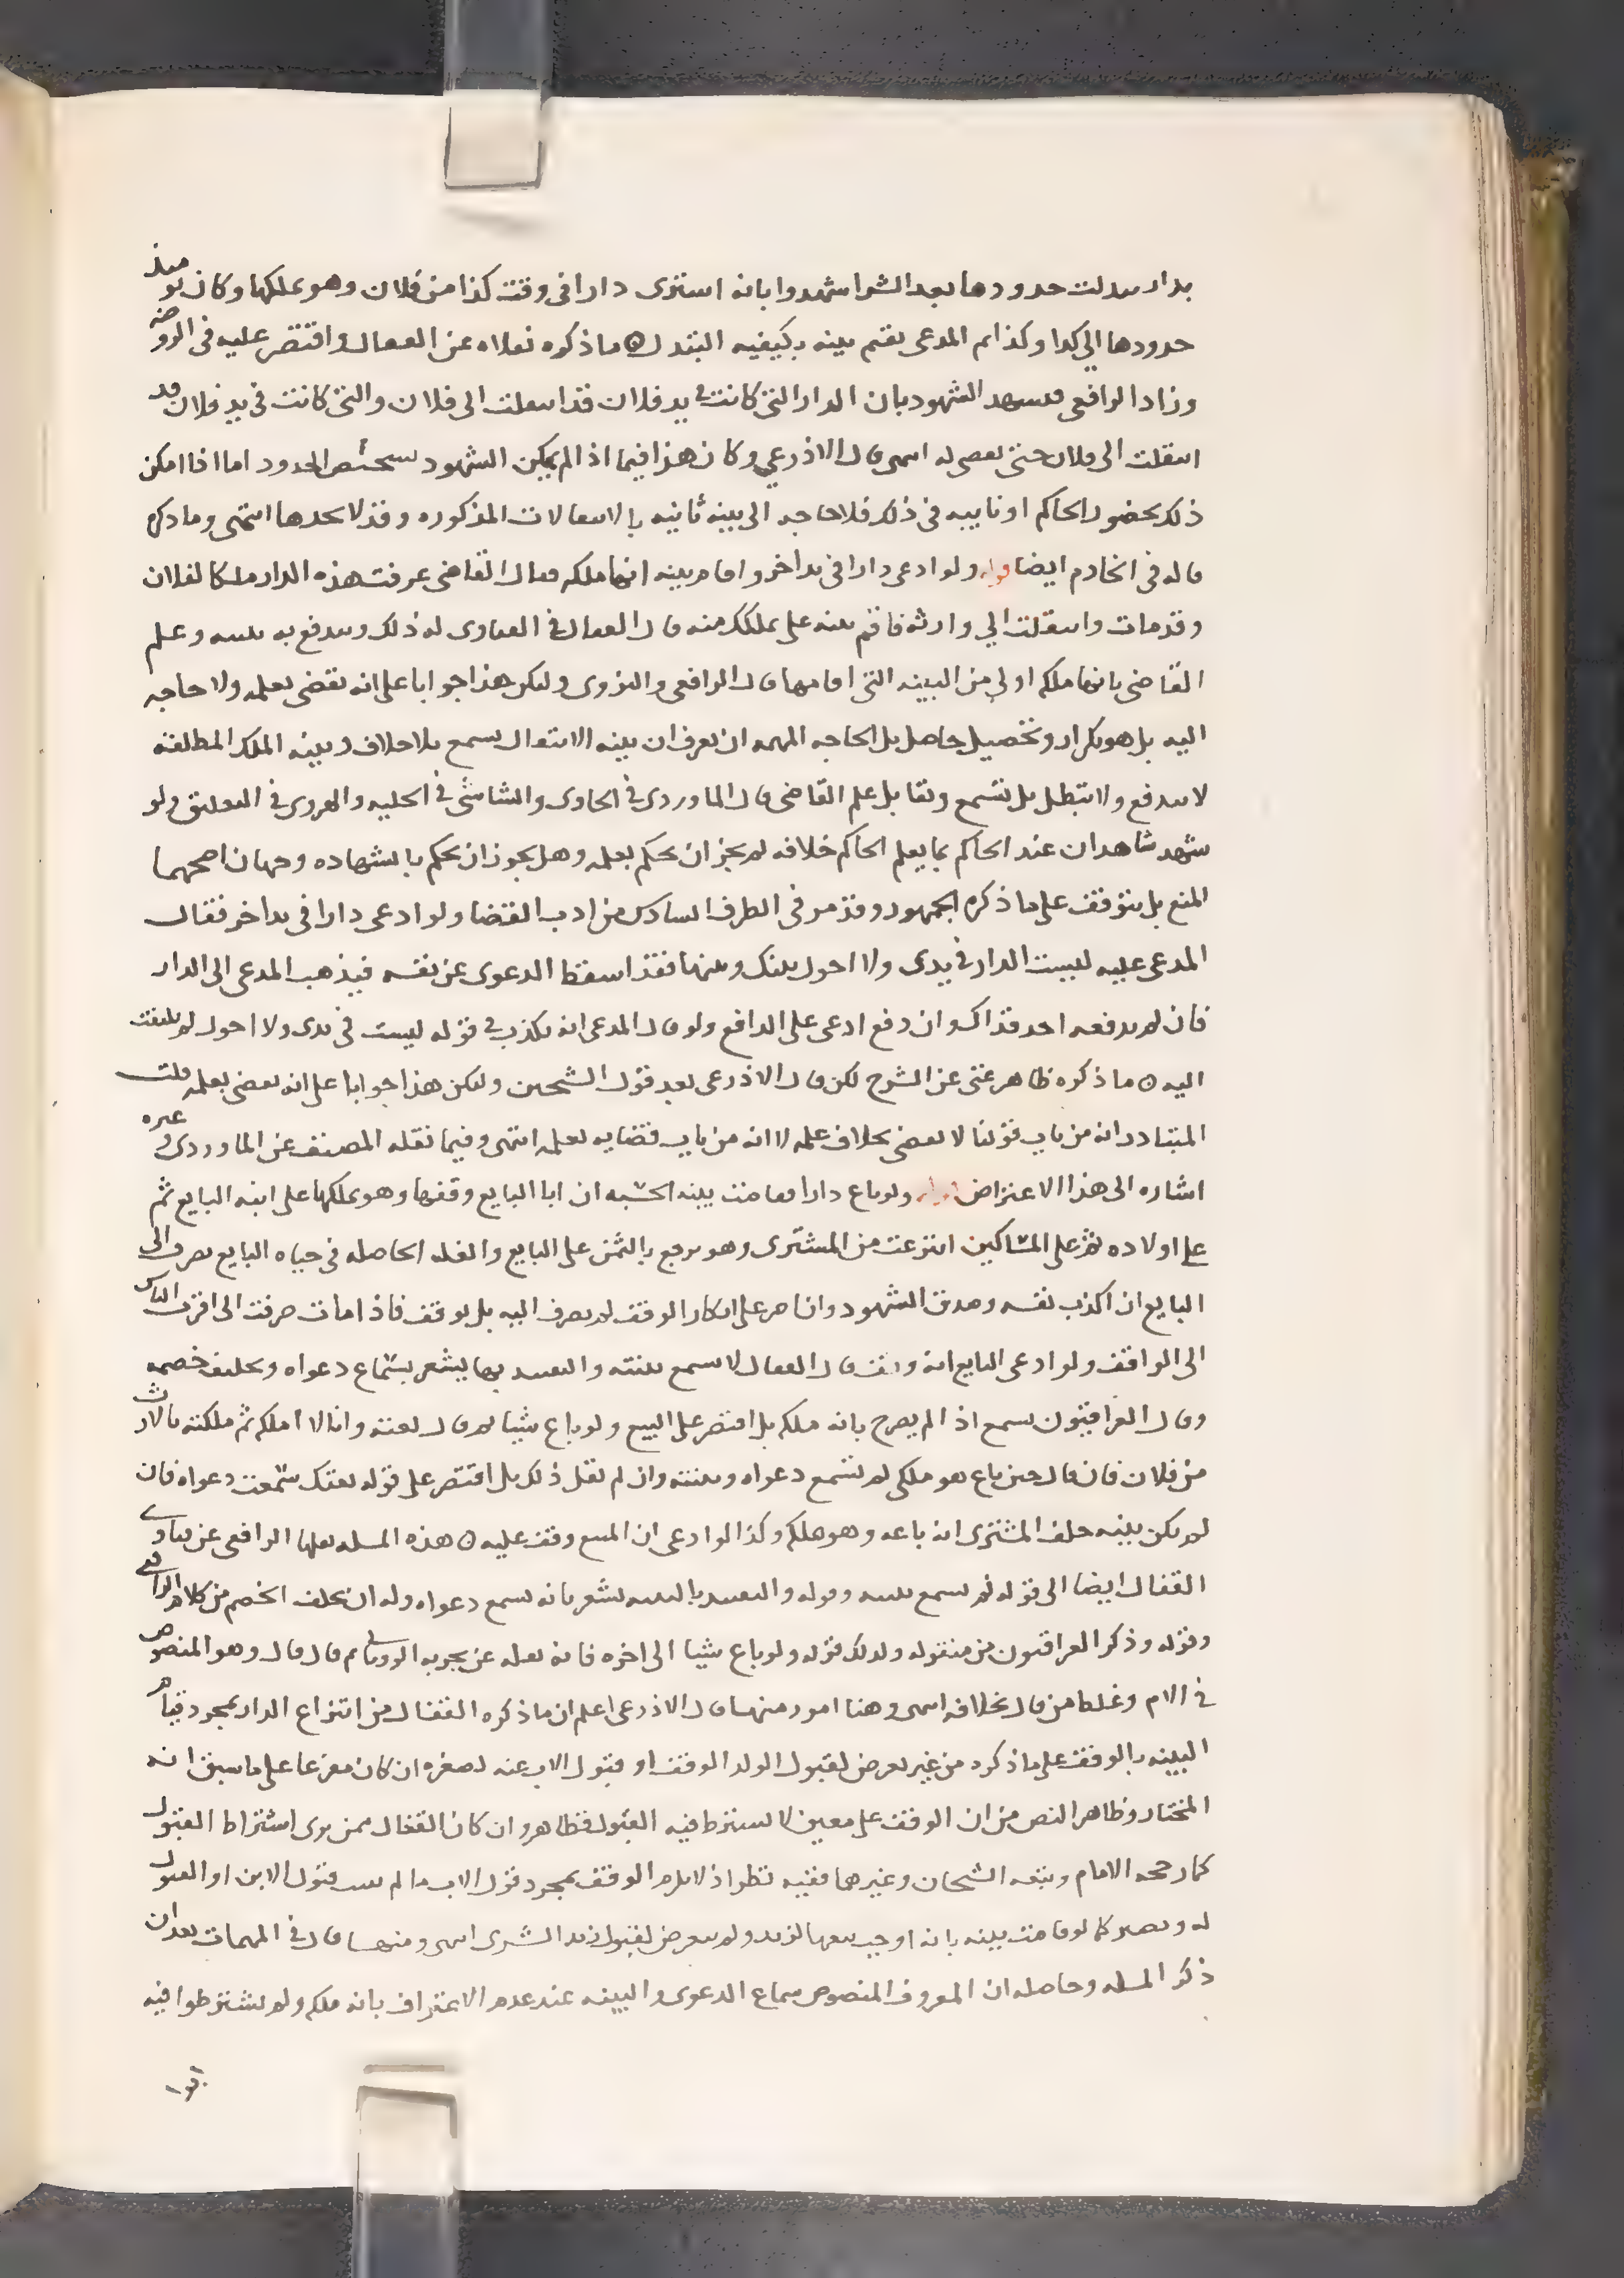 بدار تبدلت حدودها بعد الشرا شهدوا بانه اشترى دارا فى وقت كذا من فلان وهو يملكها وكان يوميذ
حدودها الي كدا وكذا ثم المدعى يقيم بينه بكيفيه التبدل ⊙ ما ذكره نقلاه عن القفال واقتصر عليه فى الروضه
وزاد الرافعى فيشهد الشهود بان الدار التى كانت فى يد فلان قد انتقلت الى فلان والتى كانت فى يد فلان قد
انتقلت الى فلان حتى يقضى له انتهى قال الاذرعي وكان هذا فيما اذا لم يمكن الشهود تشخيص الحدود اما اذا امكن
ذلك بحضور الحاكم او نايبه فى ذلك فلا حاجه الى بينه ثانيه بالانتقالات المذكوره وقد لا يجدها انتهى وما ذكره
قاله فى الخادم ايضا قوله ولو ادعى دارا فى يد اخر واقام بينه انها ملكه فقال القاضى عرفت هذه الدار ملكا لفلان
وقد مات وانتقلت الي وارثه فاقم بينه على تملكك منه قال القفال فى الفتاوى له ذلك وتندفع به بينته وعلم
القاضى بانها ملكه اولى من البينه التى اقامها قال الرافعى والنووى وليكن هذا جوابا على انه يقضى بعلمه ولا حاجه
اليه بل هو تكرار وتحصيل حاصل بل الحاجه المهمه ان يعرف ان بينه الانتقال تسمع بلا خلاف وبينه الملك المطلقه
لا تندفع ولا تبطل بل تسمع وتقابل علم القاضى قال الماوردى فى الحاوى والشاشى فى الحليه والهروى فى التعليق ولو
شهد شاهدان عند الحاكم بما يعلم الحاكم خلافه لم يجز ان يحكم بعلمه وهل يجوز ان يحكم بالشهاده وجهان اصحهما
المنع بل يتوقف على ما ذكره الجمهور وقد مر فى الطرف السادس من ادب القضا ولو ادعى دارا فى يد اخر فقال
المدعى عليه ليست الدار فى يدى ولا احول بينك وبينها فقد اسقط الدعوى عن نفسه فيذهب المدعى الى الدار
فان لم يدفعه احد فذاك وان دفع ادعى على الدافع ولو قال المدعى انه يكذب فى قوله ليست فى يدى ولا احول لم يلتفت
اليه ⊙ ما ذكره ظاهر غنى عن الشرح لكن قال الاذرعى بعد قول الشيخين وليكن هذا جوابا على انه يقضى بعلمه قلت
المتبادر انه من باب قولنا لا يقضى بخلاف علمه لا انه من باب قضايه بعلمه انتهى وفيما نقله المصنف عن الماوردى وغيره
اشاره الى هذا الاعتراض قوله ولو باع دارا فقامت بينه الحسبه ان ابا البايع وقفها وهو يملكها على ابنه البايع ثم
على اولاده ثم على المساكين انتزعت من المشترى وهو يرجع بالثمن على البايع والغله الحاصله فى حياه البايع تصرف الى
البايع ان اكذب نفسه وصدق الشهود وان اصر على انكار الوقف لم يصرف اليه بل يوقف فاذا مات صرفت الى اقرب الناس
الى الواقف ولو ادعى البايع انه وقف قال القفال لا تسمع بينته والتقييد بها يشعر بسماع دعواه وتحليف خصمه
وقال العراقيون تسمع اذا لم يصرح بانه ملكه بل اقتصر على البيع ولو باع شيا ثم قال بعته وانا لا املكه ثم ملكته بالارث
من فلان فان قال حين باع هو ملكى لم تسمع دعواه وبينته وان لم يقل ذلك بل اقتصر على قوله بعتك سمعت دعواه فان
لم يكن بينه حلف المشترى انه باعه وهو ملكه وكذا لو ادعى ان المبيع وقف عليه ⊙ هذه المسله نقلها الرافعى عن فتاوى
القفال ايضا الى قوله لم تسمع بينته وقوله والتقييد بالبينه يشعر بانه تسمع دعواه وله ان يحلف الخصم من كلام الرافعى
وقوله وذكر العراقيون من منقوله وكذلك قوله ولو باع شيا الى اخره فانه نقله عن تجربه الرويانى ثم قال قال وهو المنصوص
فى الام وغلط من قال بخلافه انتهى وهنا امور منها قال الاذرعى اعلم ان ما ذكره القفال من انتزاع الدار بمجرد قيام
البينه بالوقف على ما ذكره من غير تعرض لقبول الولد الوقف او قبول الاب عنه لصغره ان كان مفرعا على ما سبق انه
المختار وظاهر النص من ان الوقف على معين لا يشترط فيه القبول فظاهر وان كان القفال ممن يرى اشتراط القبول
كما رجحه الامام وتبعه الشيخان وغيرهما ففيه نظر اذ لا يلزم الوقف بمجرد قول الاب ما لم يثبت قبول الابن او القبول
له ويصير كما لو قامت بينه بانه اوجب بيعها لزيد ولم يتعرض لقبول زيد الشرى انتهى ومنها قال فى المهمات بعد ان
ذكر المسله وحاصله ان المعروف المنصوص سماع الدعوى والبينه عند عدم الاعتراف بانه ملكه ولم يشترطوا فيه